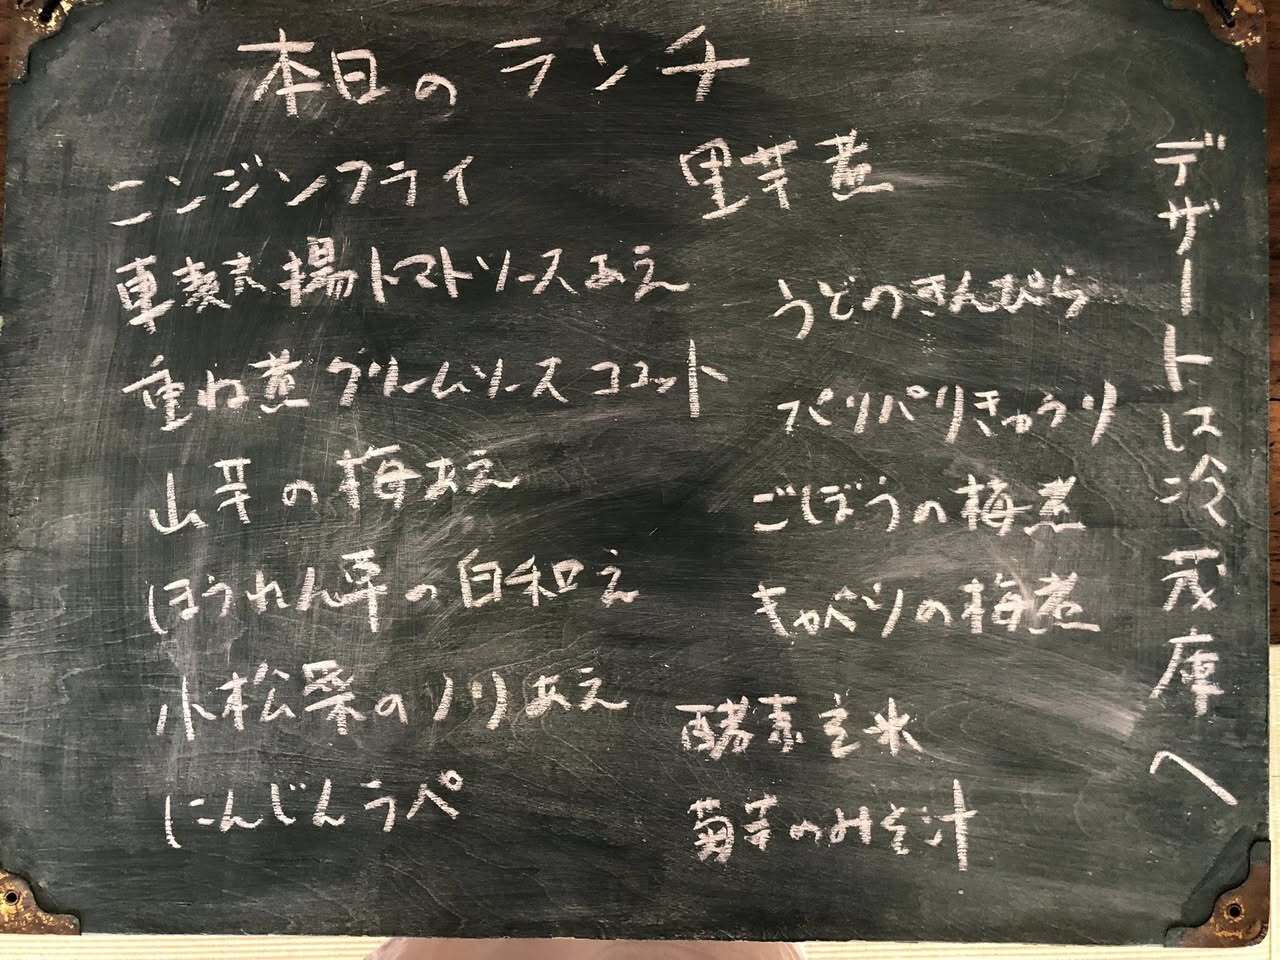 本日のランチ
ニンジンフライ
車麩揚トマトソースあえ
重ね煮クリームソースココット
山芋の梅あえ
ほうれん草の白和え
小松菜のノリあえ
にんじんラペ
里芋煮
うどのきんぴら
パリパリきゅうり
ごぼうの梅煮
キャベツの梅煮
酵素玄米
菊芋のみそ汁
デザートは冷蔵庫へ